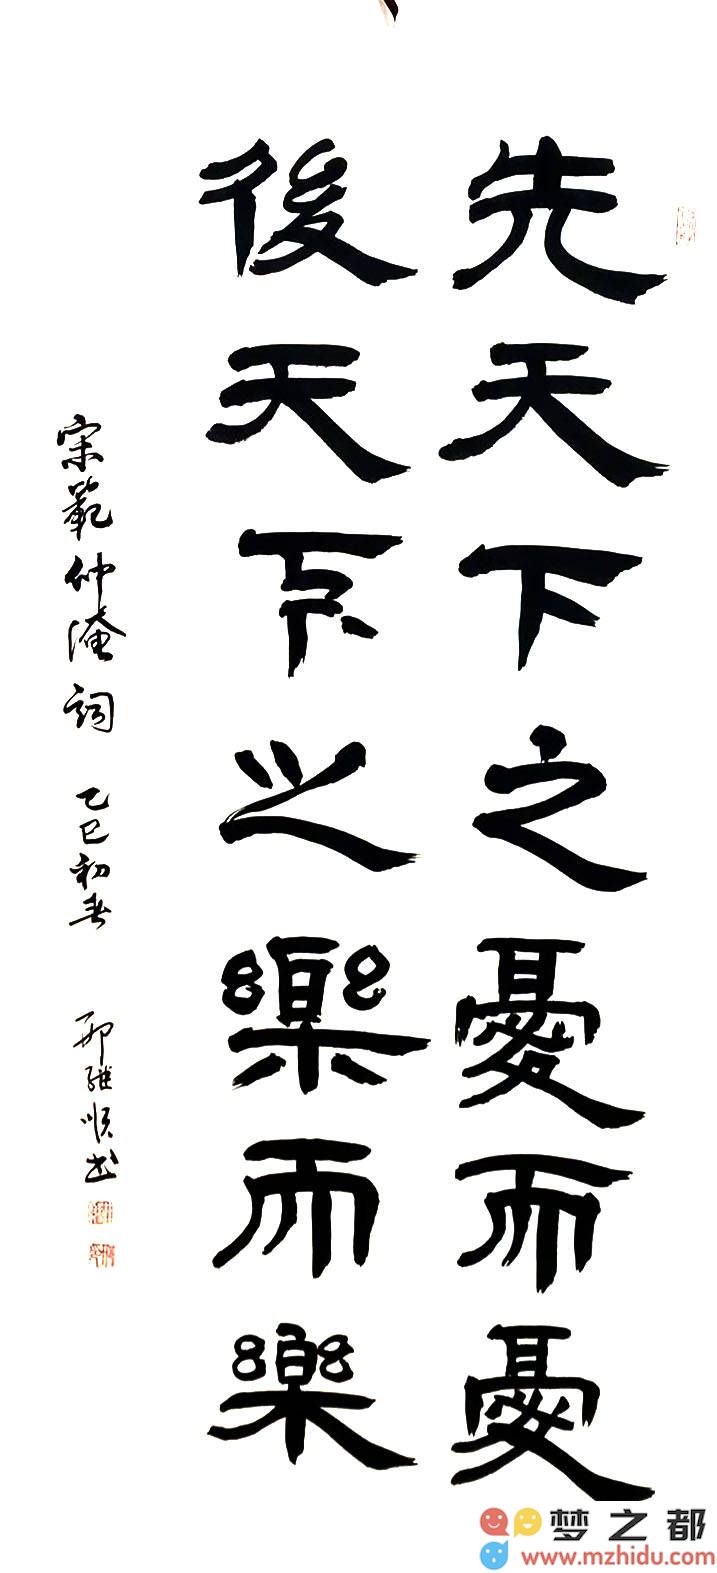 先天下之憂而憂
後天下之樂而樂
宋範仲淹詞 乙巳初春 邢維順书
梦之都
www.mzhidu.com